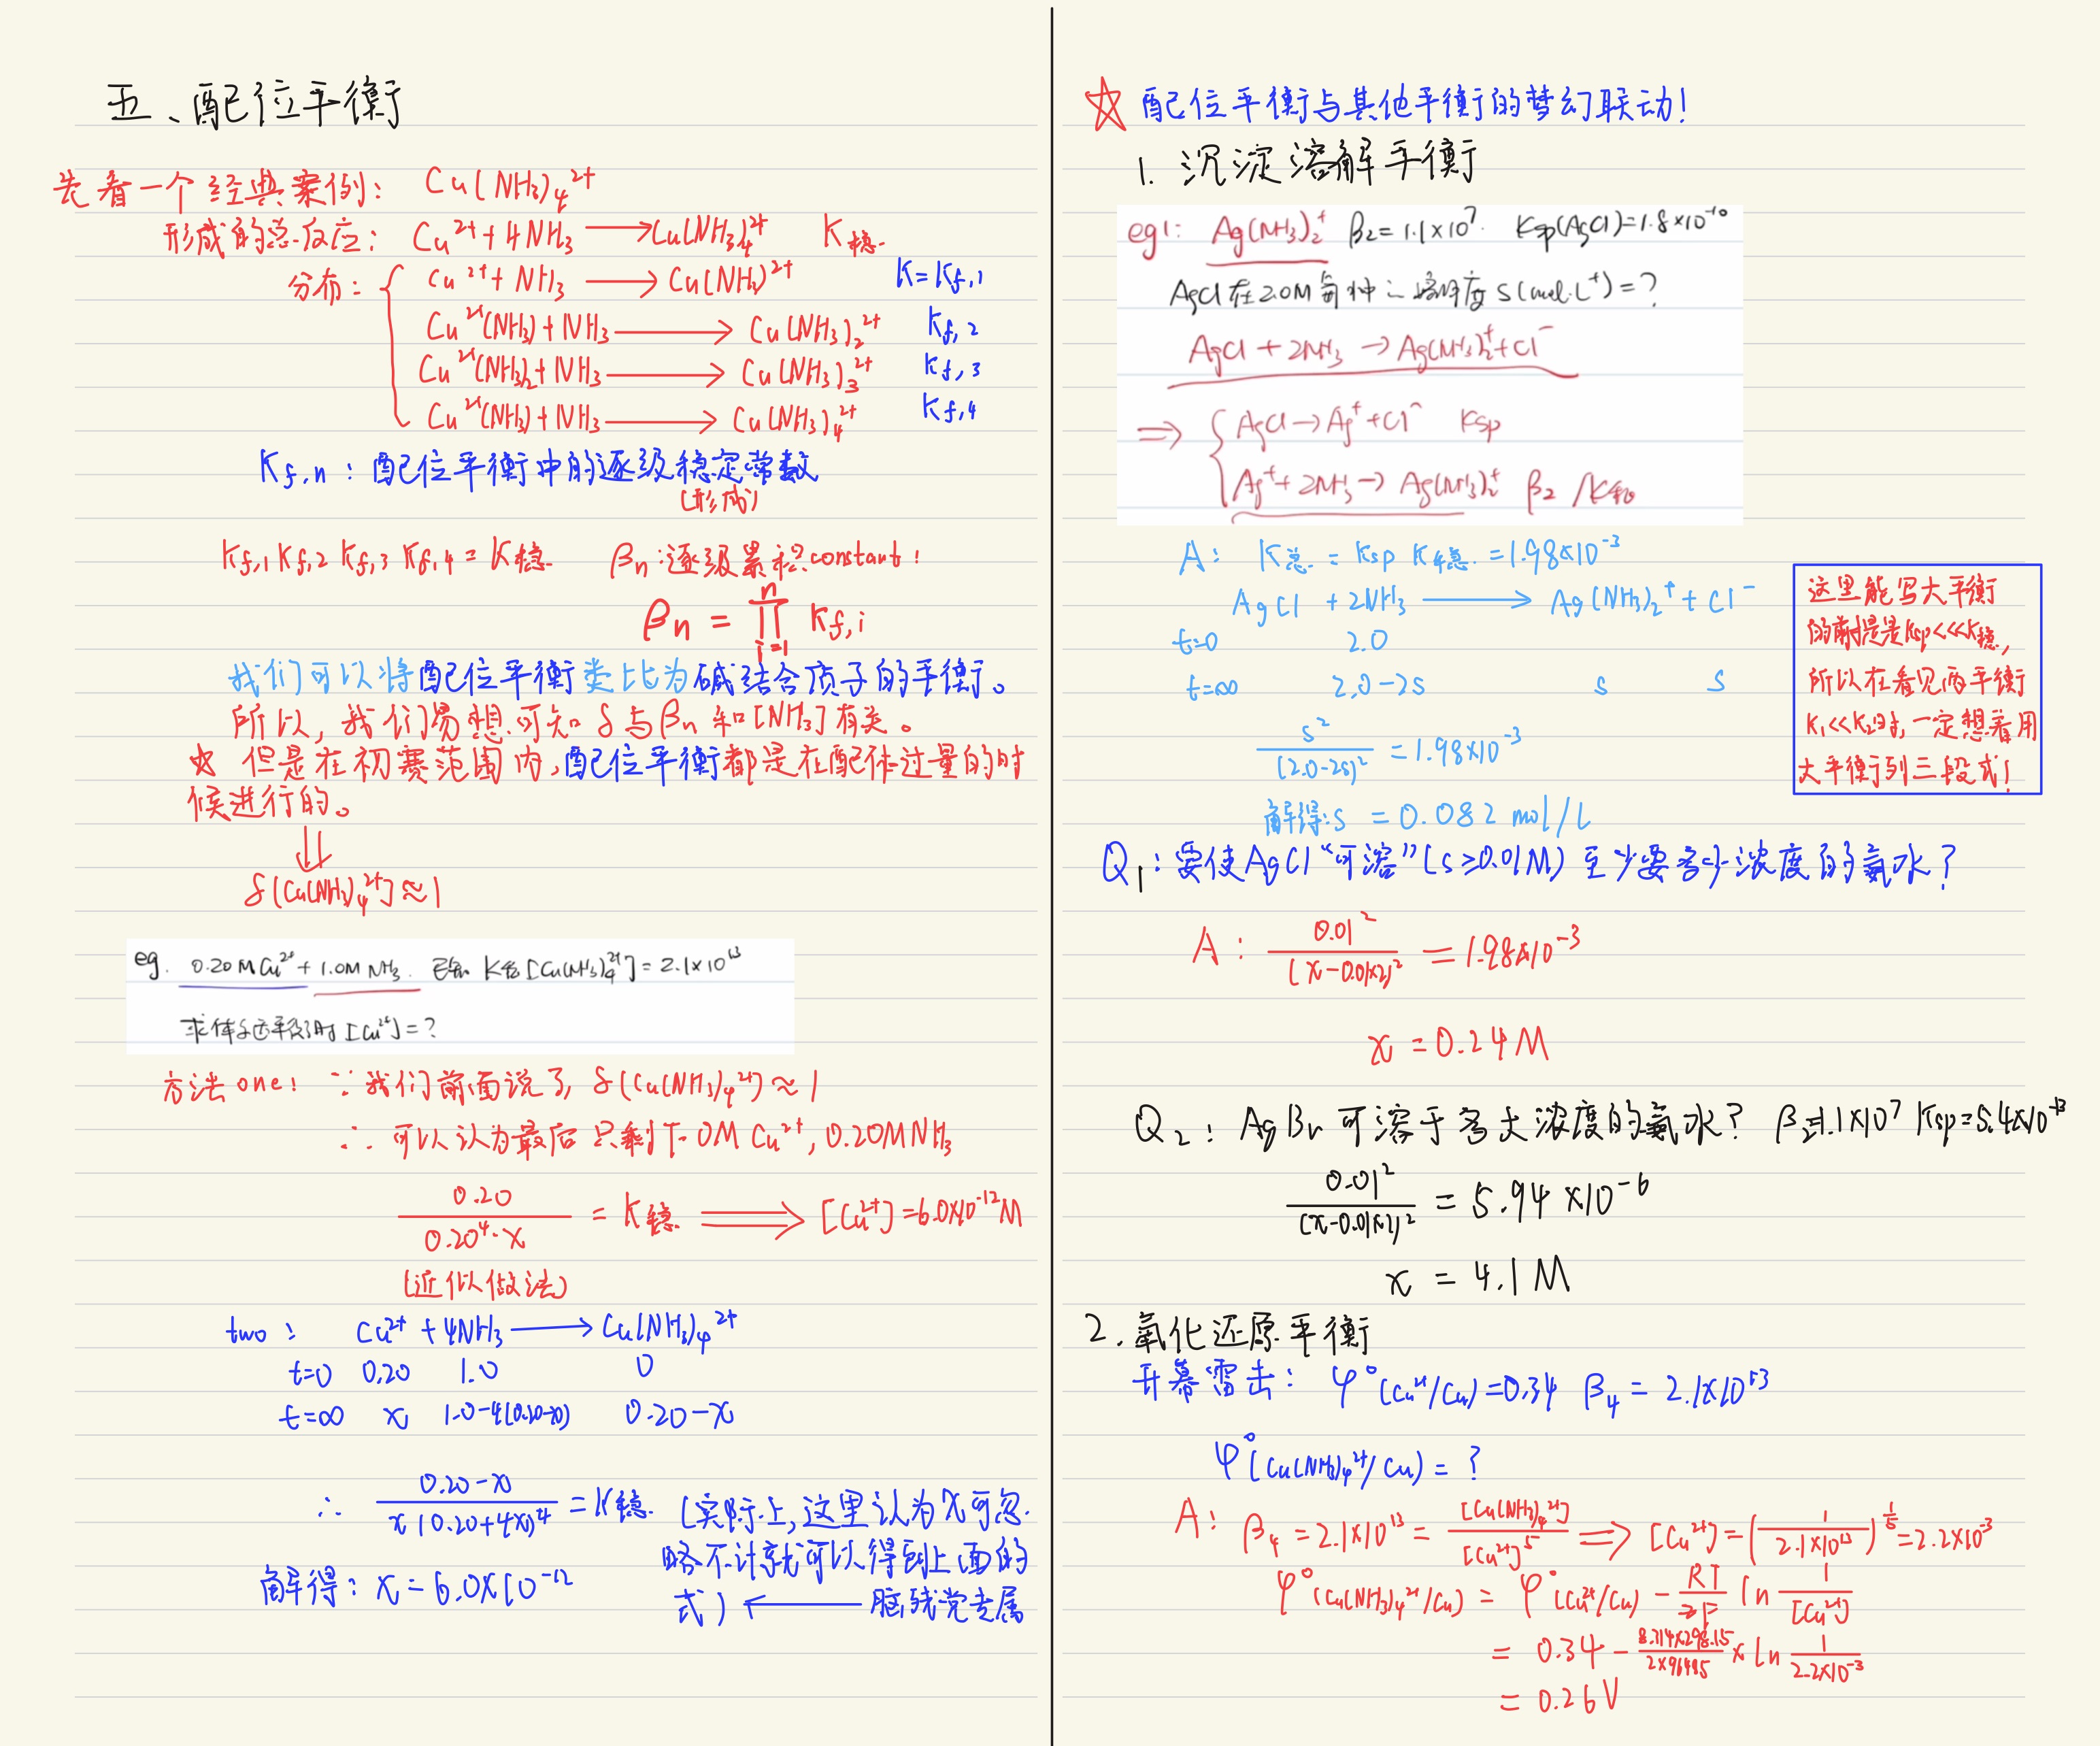 五、配位平衡
先看一个经典案例: Cu(NH₃)₄²⁺
形成的总反应: Cu²⁺ + 4NH₃ ⟶ Cu(NH₃)₄²⁺ K稳
分布: { Cu²⁺ + NH₃ ⟶ Cu(NH₃)²⁺ K=Kf,1
Cu²⁺(NH₃) + NH₃ ⟶ Cu(NH₃)₂²⁺ Kf,2
Cu²⁺(NH₃)₂ + NH₃ ⟶ Cu(NH₃)₃²⁺ Kf,3
Cu²⁺(NH₃) + NH₃ ⟶ Cu(NH₃)₄²⁺ Kf,4
Kf,n: 配位平衡中的逐级稳定常数
(形成)
Kf,1 Kf,2 Kf,3 Kf,4 = K稳 βn:逐级累积constant:
βn = ∏(i=1→n) Kf,i
我们可以将配位平衡类比为碱结合质子的平衡。
所以,我们易想可知δ与βn和[NH₃]有关。
☆ 但是在初赛范围内,配位平衡都是在配体过量的时
候进行的。
⇓
δ[Cu(NH₃)₄²⁺]≈1
eg. 0.20M Cu²⁺ + 1.0M NH₃. 已知 K稳[Cu(NH₃)₄²⁺]=2.1×10¹³
求体系达平衡时[Cu²⁺]=?
方法one: ∵我们前面说了, δ(Cu(NH₃)₄²⁺)≈1
∴ 可以认为最后只剩下0M Cu²⁺, 0.20M NH₃
0.20/(0.20⁴·x) = K稳 ⟹ [Cu²⁺]=6.0×10⁻¹²M
(近似做法)
two: Cu²⁺ + 4NH₃ ⟶ Cu(NH₃)₄²⁺
t=0 0.20 1.0 0
t=∞ x 1.0-4(0.20-x) 0.20-x
∴ (0.20-x)/(x(0.20+4x)⁴) = K稳. (实际上,这里认为x可忽
略不计就可以得到上面的
解得: x=6.0×10⁻¹²
式) ⟵ 脑残党专属
☆ 配位平衡与其他平衡的梦幻联动!
1. 沉淀溶解平衡
eg1: Ag(NH₃)₂⁺ β₂=1.1×10⁷. Ksp(AgCl)=1.8×10⁻¹⁰
AgCl在2.0M氨中之溶解度S(mol·L⁻¹)=?
AgCl + 2NH₃ → Ag(NH₃)₂⁺+Cl⁻
⟹ { AgCl → Ag⁺+Cl⁻ Ksp
Ag⁺+2NH₃ → Ag(NH₃)₂⁺ β₂/K稳
A: K总 = Ksp K稳 = 1.98×10⁻³
AgCl + 2NH₃ ⟶ Ag(NH₃)₂⁺ + Cl⁻
t=0 2.0
t=∞ 2.0-2s s s
s²/(2.0-2s)² = 1.98×10⁻³
解得:s = 0.082 mol/L
这里能写大平衡
的前提是Ksp<<<K稳,
所以在看见两平衡
K₁<<K₂时,一定想着用
大平衡列三段式!
Q₁: 要使AgCl“可溶”(s≥0.01M)至少要多少浓度的氨水?
A: 0.01²/(x-0.01×2)² = 1.98×10⁻³
x = 0.24M
Q₂: AgBr可溶于多大浓度的氨水? β₂=1.1×10⁷ Ksp=5.4×10⁻¹³
0.01²/(x-0.01×2)² = 5.94×10⁻⁶
x = 4.1M
2.氧化还原平衡
开幕雷击: φ°(Cu²⁺/Cu)=0.34 β₄ = 2.1×10¹³
φ°[Cu(NH₃)₄²⁺/Cu) = ?
A: β₄ = 2.1×10¹³ = [Cu(NH₃)₄²⁺]/[Cu²⁺]⁵ ⟹ [Cu²⁺]=(1/(2.1×10¹³))^(1/5)=2.2×10⁻³
φ°(Cu(NH₃)₄²⁺/Cu) = φ°(Cu²⁺/Cu) - RT/2F ln 1/[Cu²⁺]
= 0.34 - (8.314×298.15)/(2×96485) × ln 1/(2.2×10⁻³)
= 0.26V